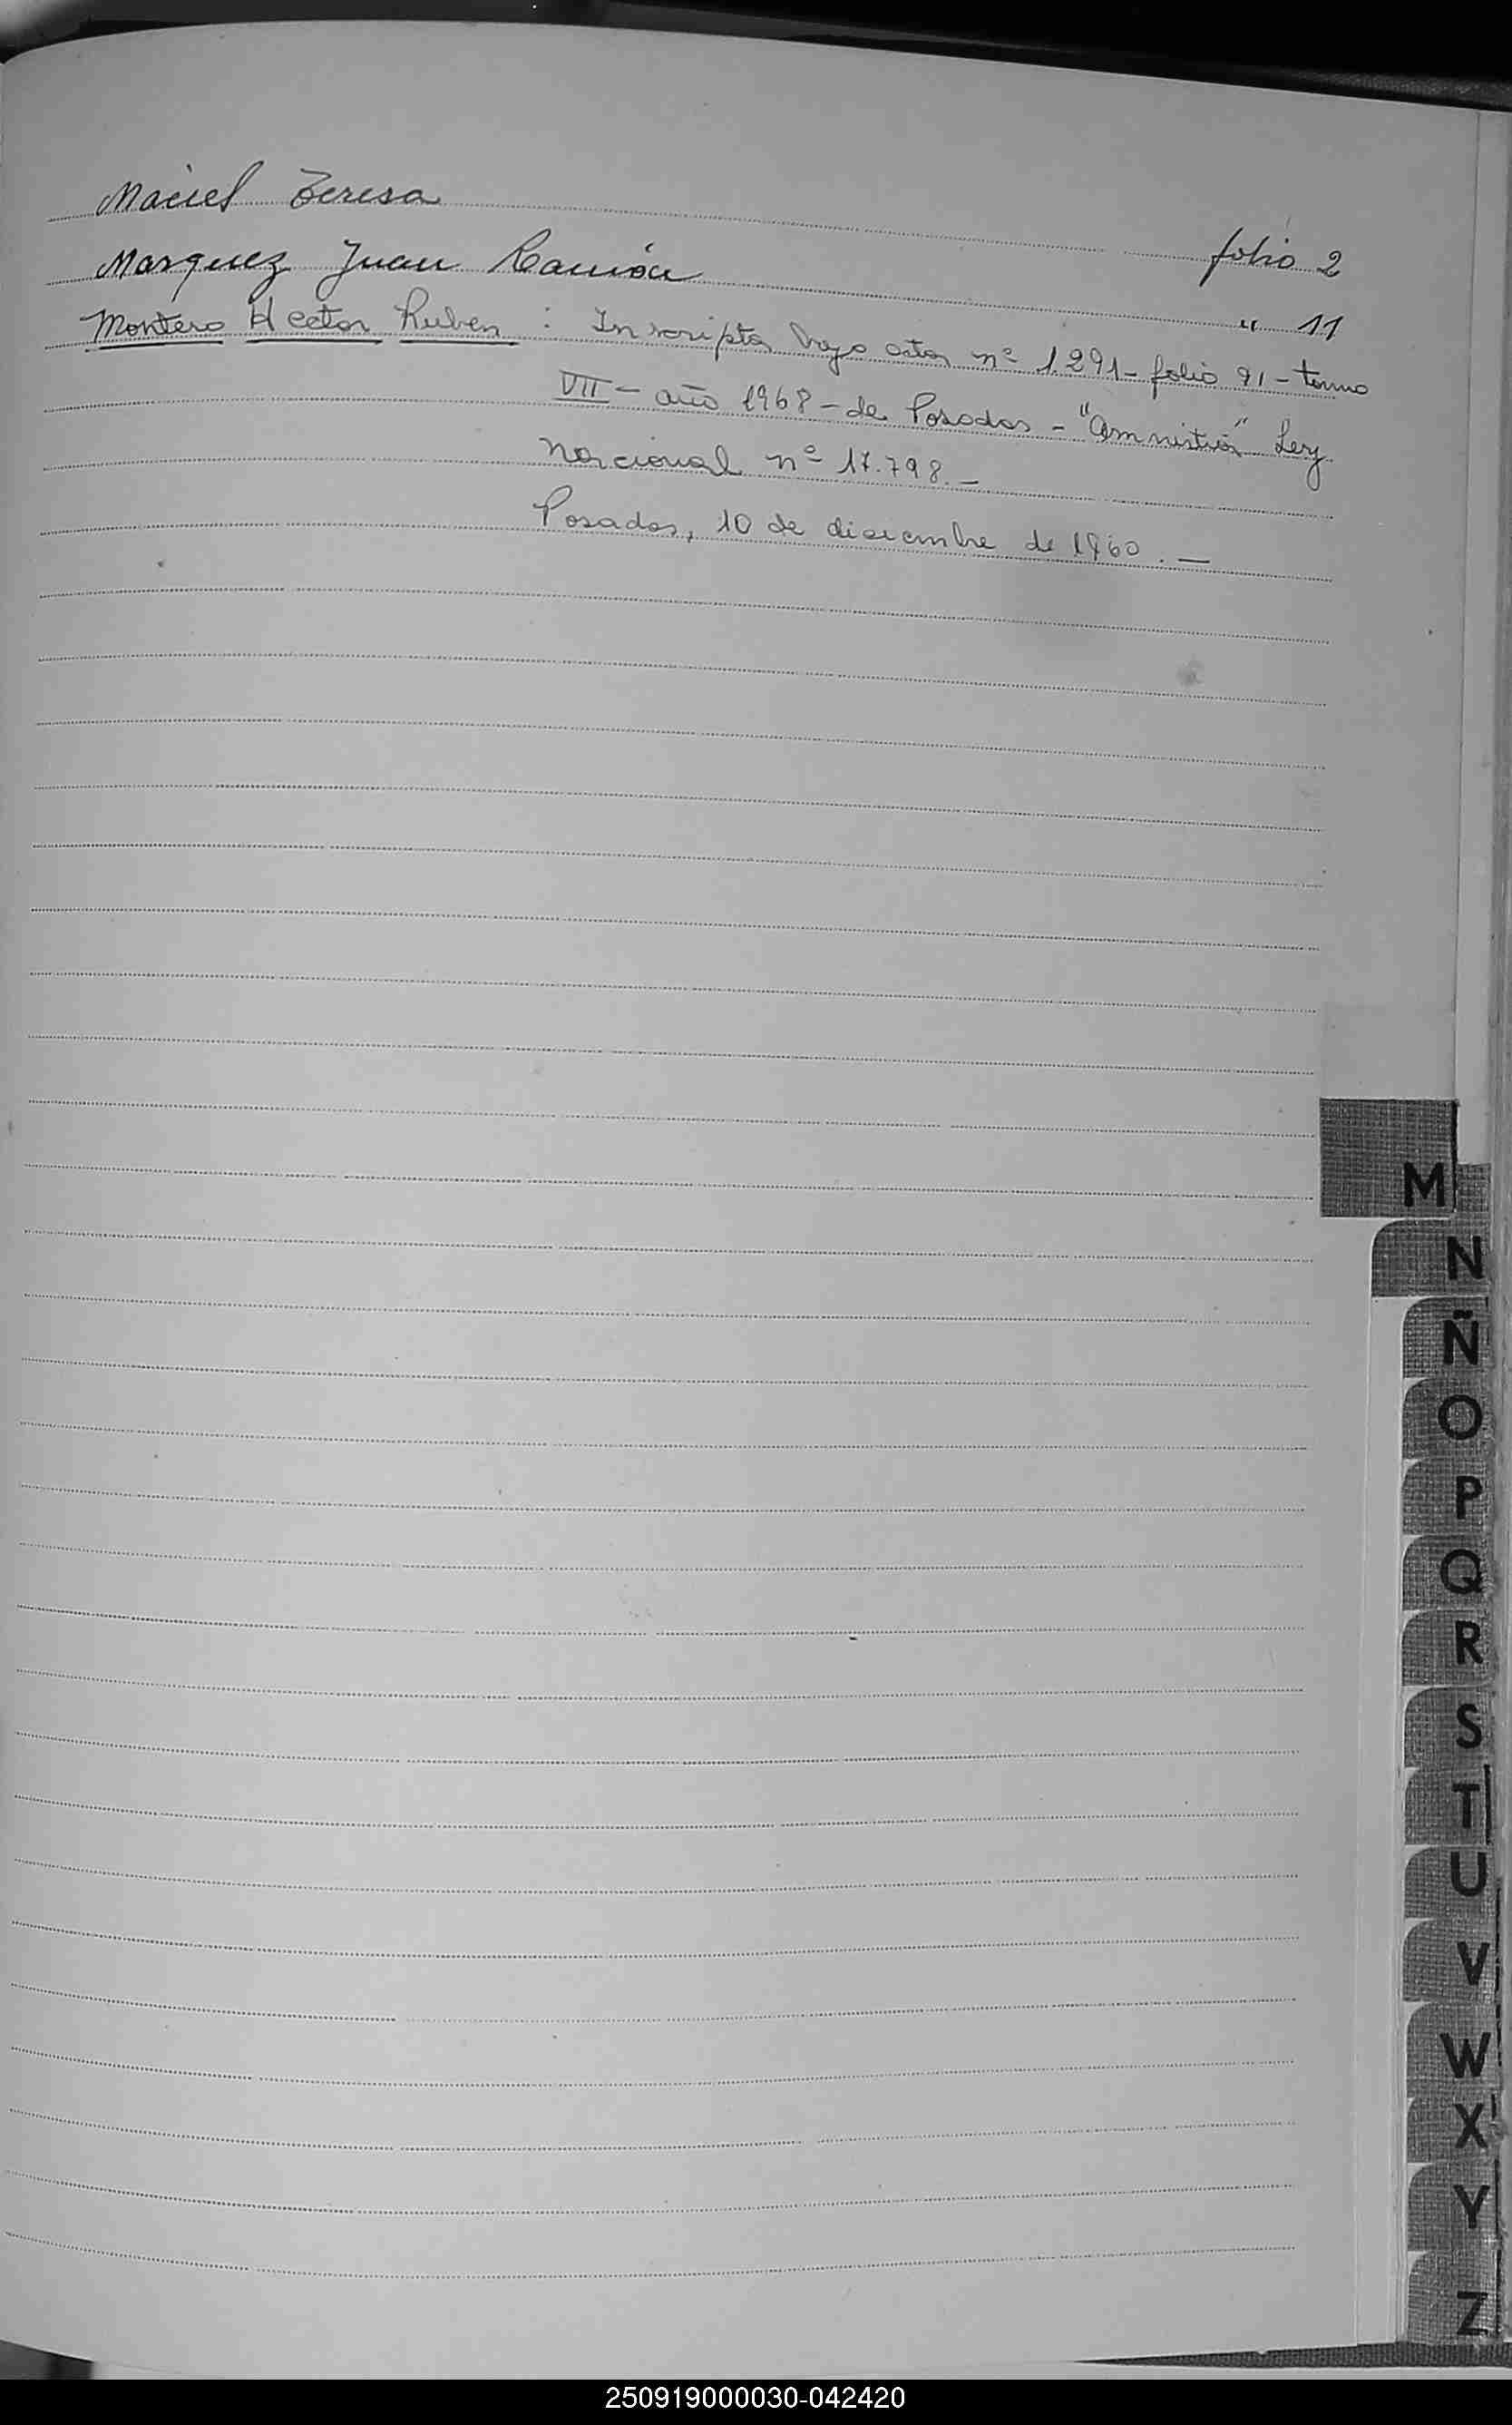 Maciel Teresa folio 2
Marquez Juan Ramón " 11
Montero Hector Ruben : Inscripta bajo acta nº 1.291 - folio 91 - tomo
VII - año 1968 - de Posadas - "Amnistía" Ley
Nacional nº 17.798. -
Posadas, 10 de diciembre de 1960. -
M
N
Ñ
O
P
Q
R
S
T
U
V
W
X
Y
Z
250919000030-042420